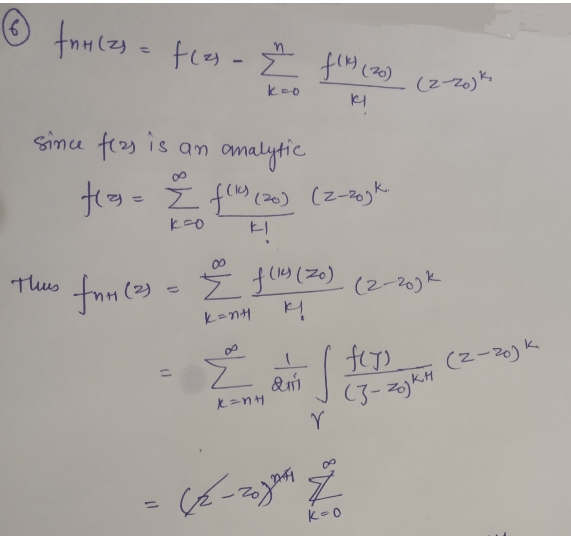 ⑥ f_{n+1}(z) = f(z) - \sum_{k=0}^{n} \frac{f^{(k)}(z_0)}{k!} (z-z_0)^k
since f(z) is an analytic
f(z) = \sum_{k=0}^{\infty} \frac{f^{(k)}(z_0)}{k!} (z-z_0)^k
Thus f_{n+1}(z) = \sum_{k=n+1}^{\infty} \frac{f^{(k)}(z_0)}{k!} (z-z_0)^k
= \sum_{k=n+1}^{\infty} \frac{1}{2\pi i} \int_{\gamma} \frac{f(\zeta)}{(\zeta-z_0)^{k+1}} (z-z_0)^k
= (z-z_0)^{n+1} \sum_{k=0}^{\infty}